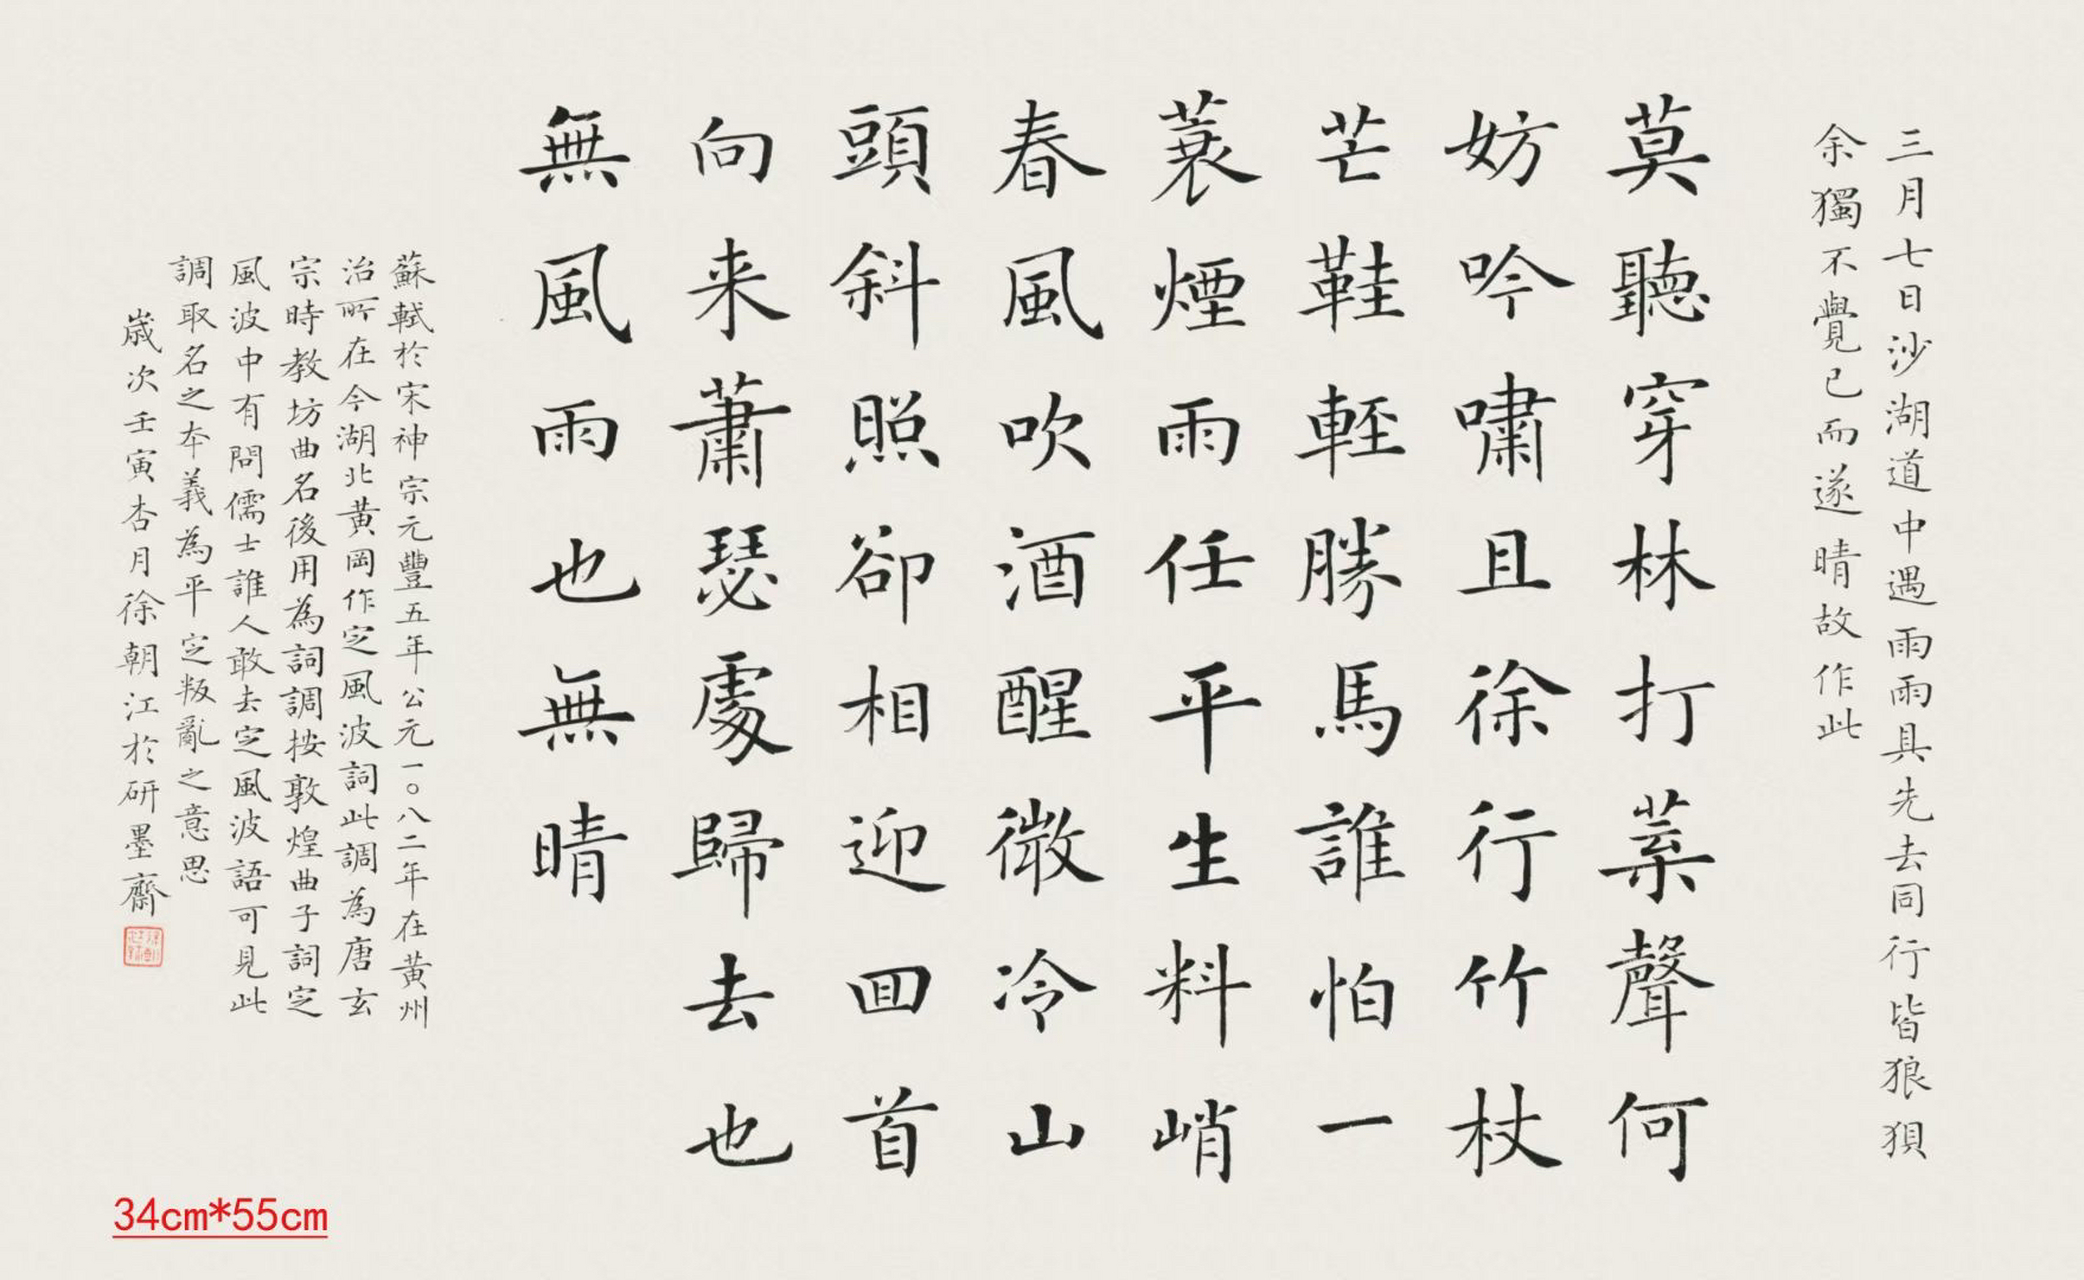 三月七日沙湖道中遇雨雨具先去同行皆狼狽
余獨不覺已而遂晴故作此
莫聽穿林打葉聲何
妨吟嘯且徐行竹杖
芒鞋輕勝馬誰怕一
蓑煙雨任平生料峭
春風吹酒醒微冷山
頭斜照卻相迎回首
向来蕭瑟處歸去也
無風雨也無晴
蘇軾於宋神宗元豐五年公元一〇八二年在黄州
治所在今湖北黄岡作定風波詞此調為唐玄
宗時教坊曲名後用為詞調按敦煌曲子詞定
風波中有問儒士誰人敢去定風波語可見此
調取名之本義為平定叛亂之意思
歲次壬寅杏月徐朝江於研墨齋
34cm*55cm